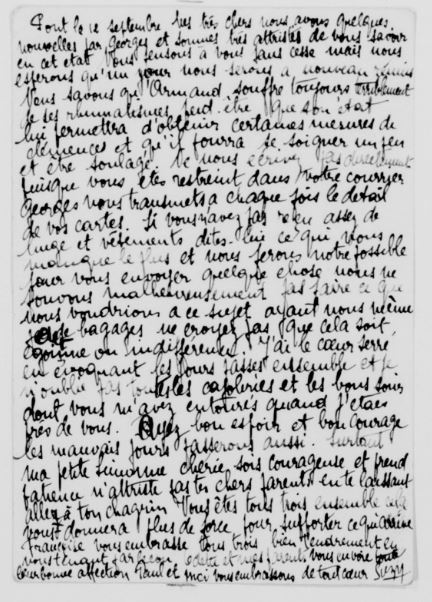 le 12 septembre Mes très chers nous avons quelques
nouvelles par Georges et sommes très attristés de vous savoir
en cet état Nous pensons à vous sans cesse mais nous
esperons qu'un jour nous serons à nouveau réunis
Nous savons qu'Armand souffre toujours terriblement
de ses rhumatismes peut-être que son état
lui permettra d'obtenir certaines mesures de
clémences et qu'il pourra se soigner un peu
et être soulagé. Ne nous écrivez pas directement
puisque vous êtes restreint dans votre courrier
Georges nous transmets à chaque fois le detail
de vos cartes. Si vous n'avez pas reçu assez de
linge et vêtements dites-lui ce qui vous
manque le plus et nous ferons notre possible
pour vous envoyer quelque chose nous ne
pouvons malheureusement pas faire ce que
nous voudrions à ce sujet ayant nous même
bagages ne croyez pas que cela soit
égoïsme ou indifférence. J'ai le cœur serré
en évoquant les jours passés ensemble et je
n'oublie pas toutes les cajoleries et les bons soins
dont vous m'avez entourés quand j'étais
près de vous. Ayez bon espoir et bon courage
les mauvais jours passerons aussi. Surtout
ma petite Simonne chérie sois courageuse et prend
patience n'attriste pas tes chers parents en te laissant
aller à ton chagrin Vous êtes tous trois ensemble cela
vous donnera plus de force pour supporter ce qui arrive
Françoise vous embrasse tous trois bien tendrement en
Odette et mes parents vous envoie toute
leur bonne affection Paul et moi vous embrassons de tout cœur Suzy